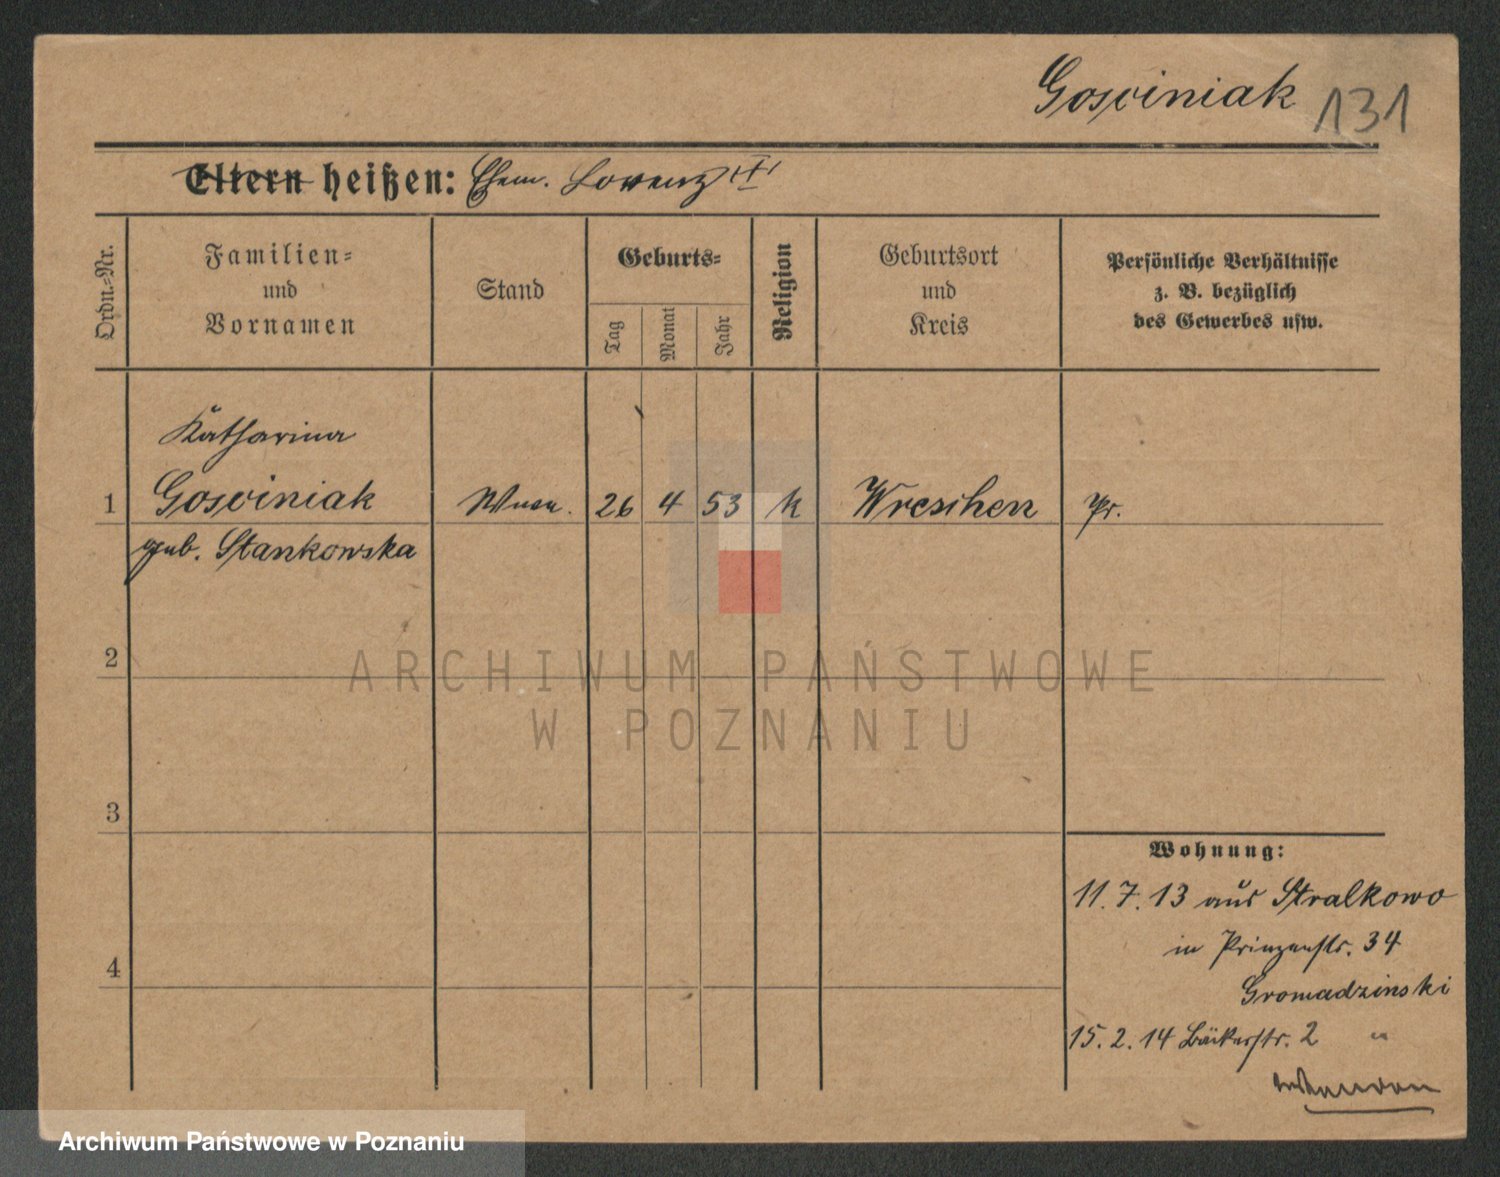 Gosciniak 131
Eltern heißen: Ehem. Lorenz
Ordn.-Nr.
Familien-
und
Vornamen
Stand
Geburts-
Tag
Monat
Jahr
Religion
Geburtsort
und
Kreis
Persönliche Verhältnisse
z. B. bezüglich
des Gewerbes usw.
Katharina
1 Gosciniak Wwe. 26 4 53 k Wreschen Pr.
geb. Stankowska
2
3
4
Wohnung:
11.7.13 aus Stralkowo
in Prinzenstr. 34
Gromadzinski
15.2.14 Bäckerstr. 2 "
ARCHIWUM PAŃSTWOWE
W POZNANIU
Archiwum Państwowe w Poznaniu